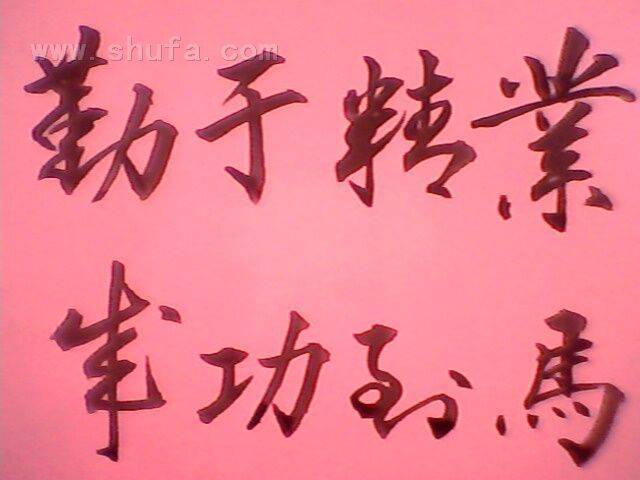 www.shufa.com
業精于勤
馬到功成